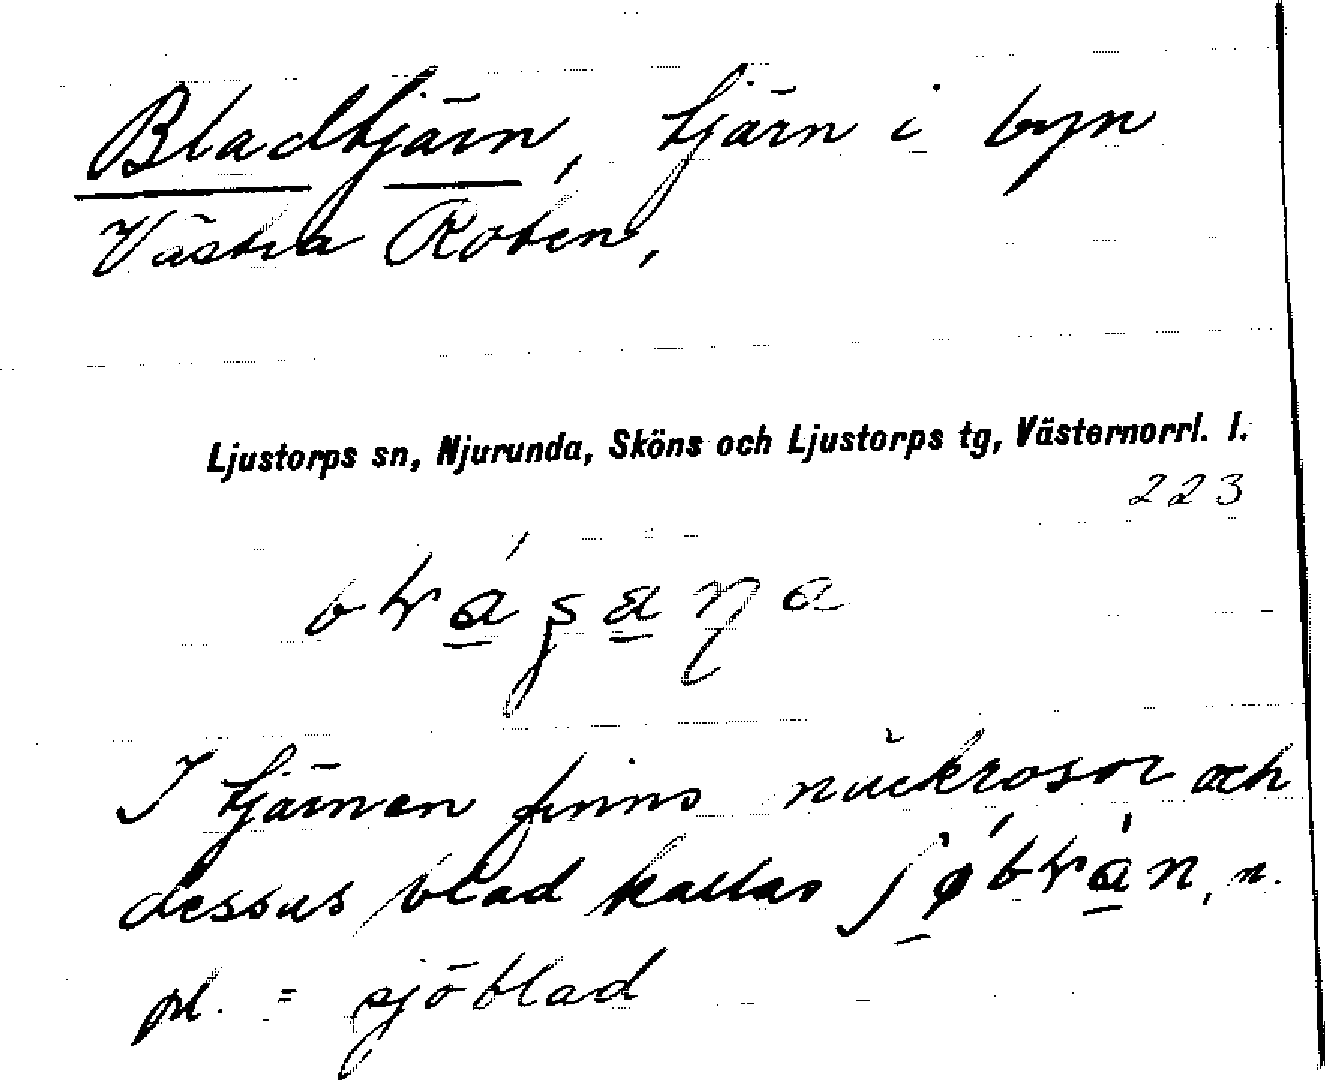 Bladtjärn, tjärn i byn
Västra Roten,
Ljustorps sn, Njurunda, Sköns och Ljustorps tg, Västernorrl. l.
223
I tjärnen finns näckrosor och
dessas blad kallas n.
pl. = sjöblad